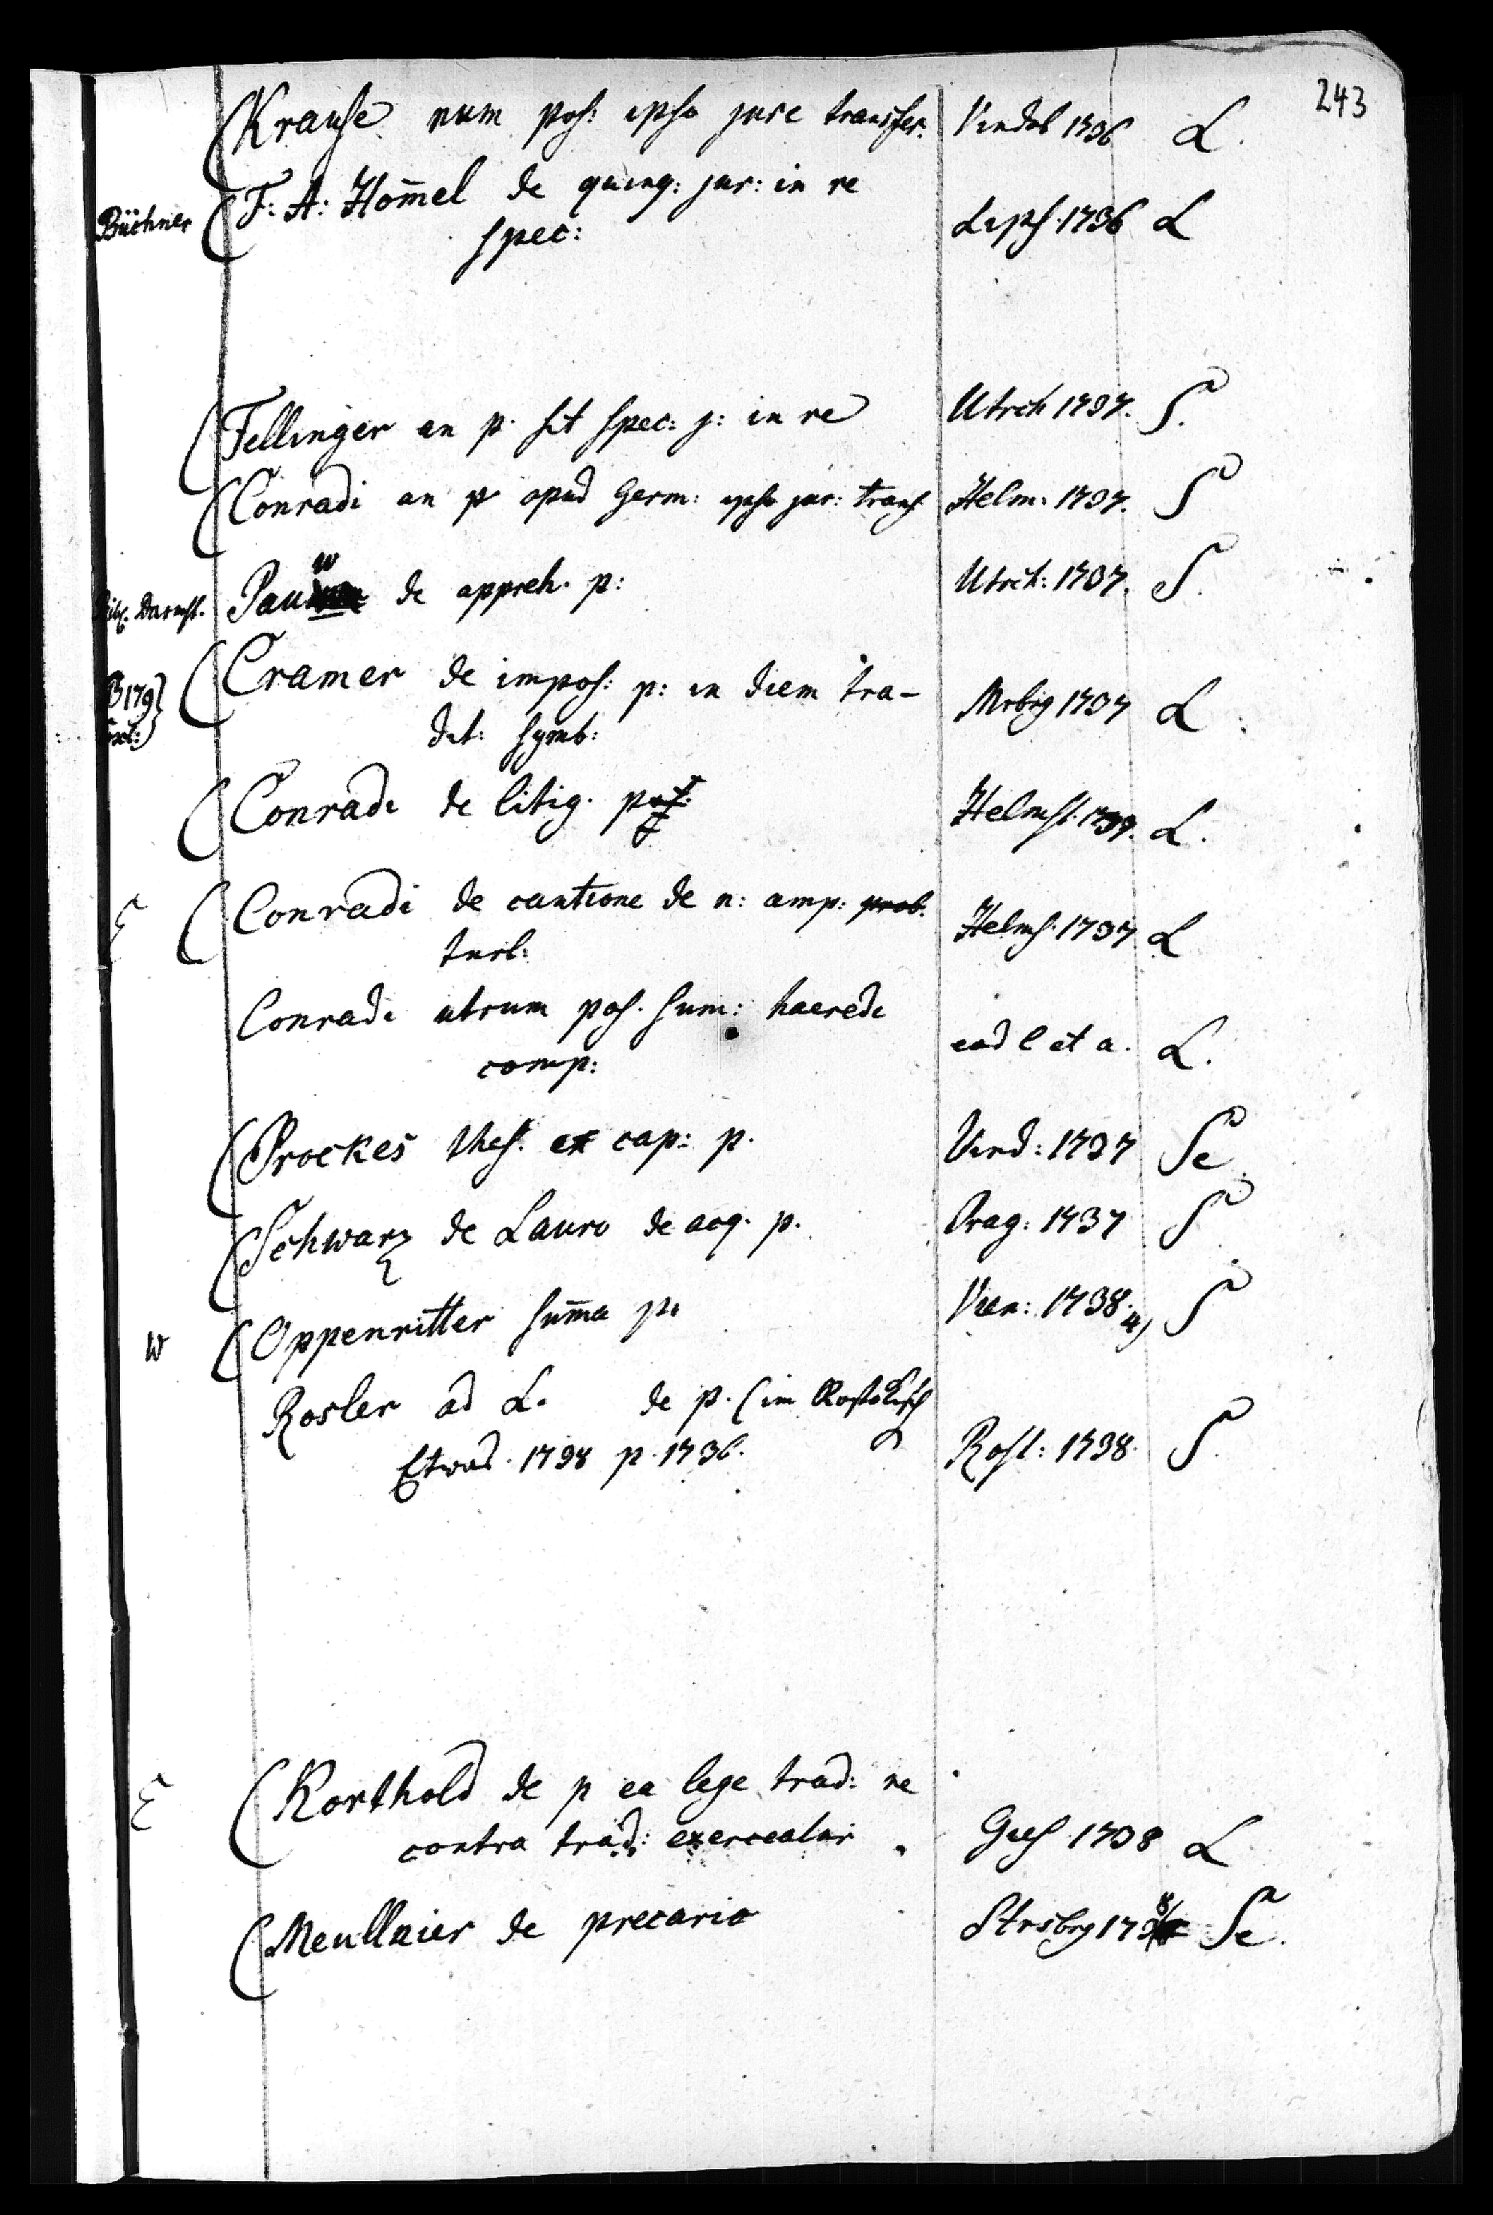 243
(Krause num pos: ipso jure transfer. Vindob 1736 L.
Büchner (F. A. Hom̄el de quinq: jur: in re
spec: Lips. 1736 L
(Tellinger an p. sit spec: j: in re Utrch 1737. S.
(Conradi an p apud Germ: ipso jur: transf Helm. 1737. S
Darmst. Pauw de appreh. p: Utrch: 1737. S.
B 179 (Cramer de impos: p: in diem tra-
dit: symb: Mrbrg 1737 L.
(Conradi de litig. pos. Helmst. 1737. L.
(Conradi de cautione de n: amp: prob.
turb: Helmst. 1737 L
Conradi utrum pos. sum: haeredi
comp: eod l et a. L.
(Brockes thes. ex cap: p. Vind: 1737 Se
(Schwarz de Lauro de acq. p. Prag: 1737 S
W (Oppenritter sum̄a p. Vien: 1738. 4) S
Rosler ad L. de p. (im Rostokisch
Etwas. 1738 p. 736. Rost: 1738. S.
(Korthold de p ea lege trad: ne
contra trad: exerceatur Gies 1738 L
(Meullnier de precario Strsbrg 1738 Se.